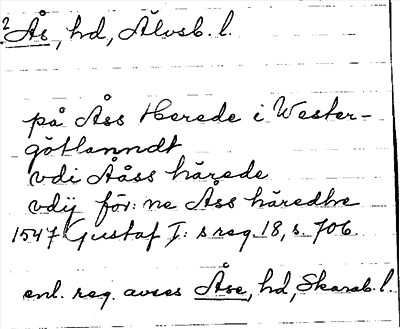 2 Ås, hd, Älvsb. l.
på Åss Herede i Wester-
götlanndt
vdi Ååss härede
vdij för: ne Åss häredhe
1547 Gustaf I: s reg. 18, s. 706.
enl. reg. avses Åse, hd, Skarab. l.